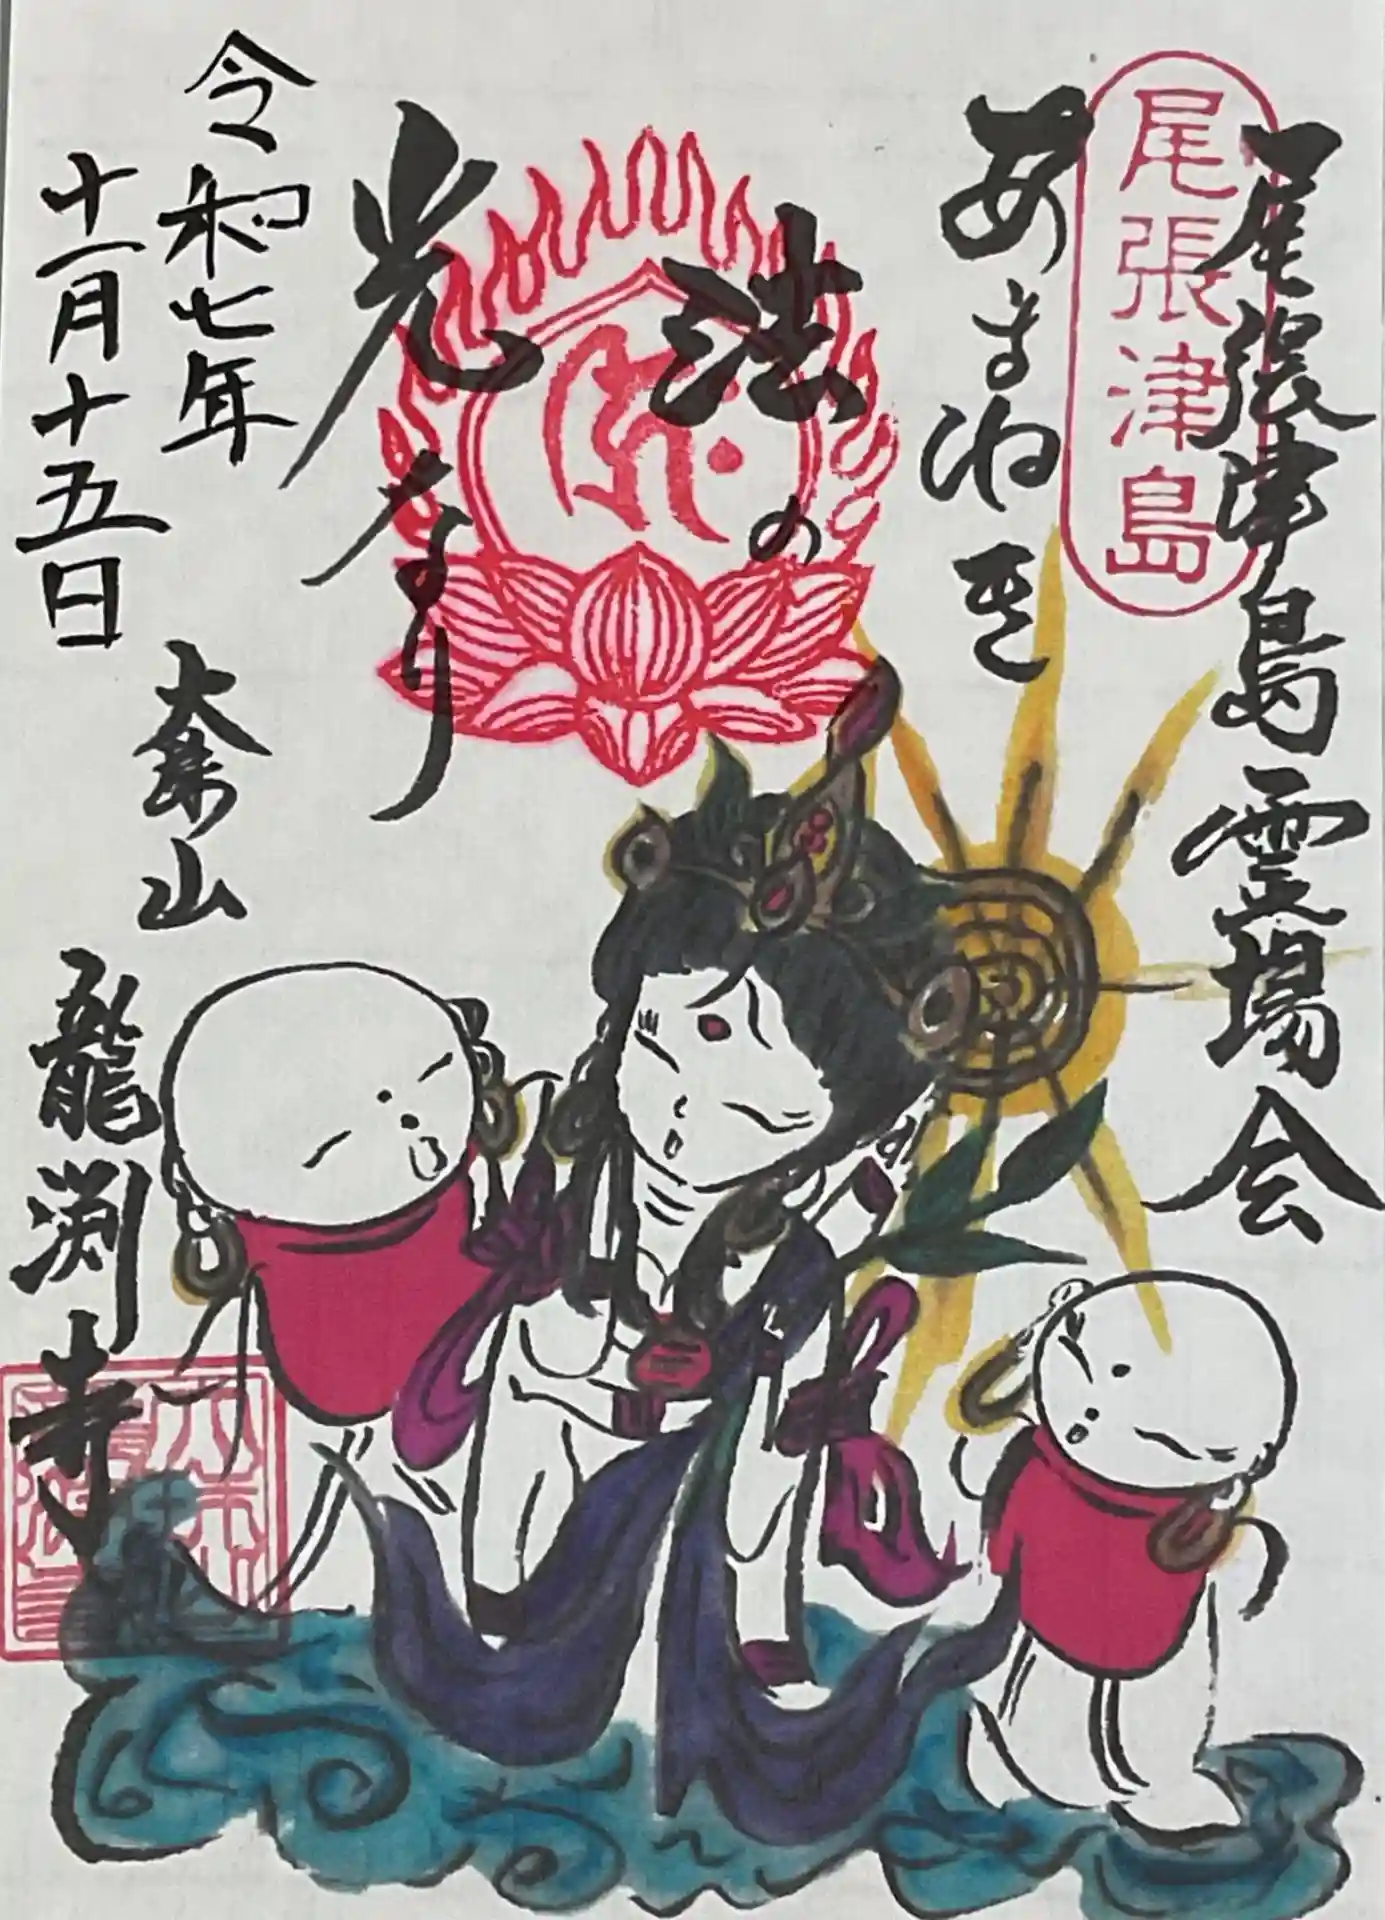 尾張津島霊場会
尾張津島
あまねき
法の
光なり
令和七年
十一月十五日
山
龍渕寺